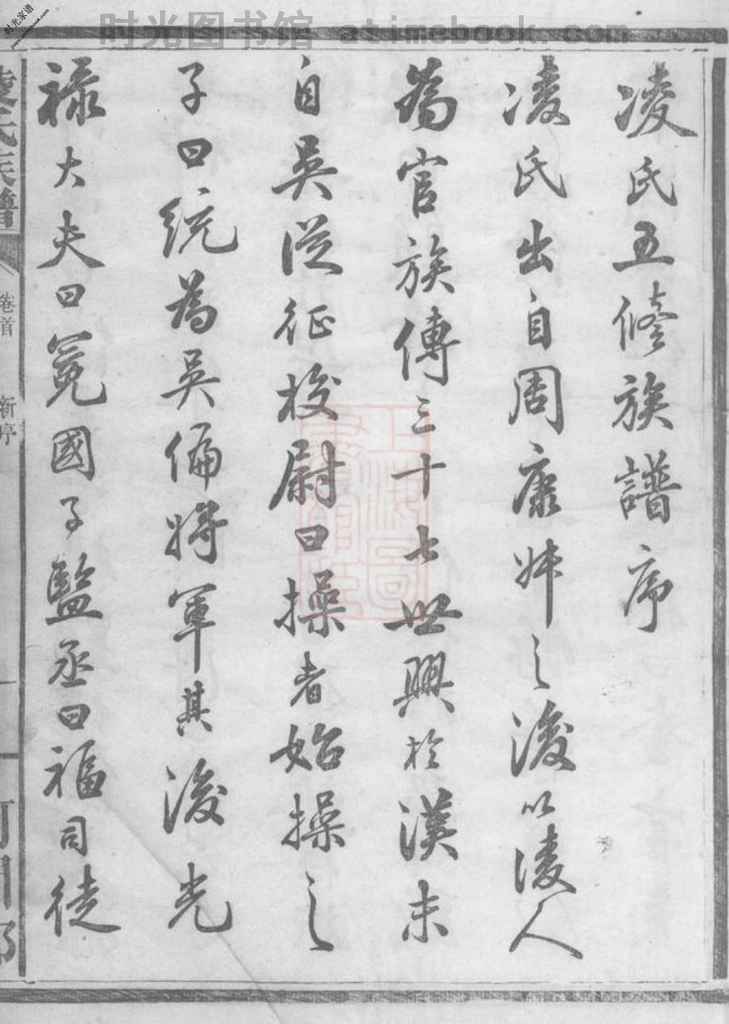 时光图书馆 atimebook.com
时光家谱
凌氏五修族譜序
凌氏出自周康叔之後以凌人
為官族傳三十七世興於漢末
自吳從征校尉曰操者始操之
子曰統為吳偏將軍其後光
祿大夫曰冕國子監丞曰福司徒
凌氏族譜
卷首
新序
一
河間郡